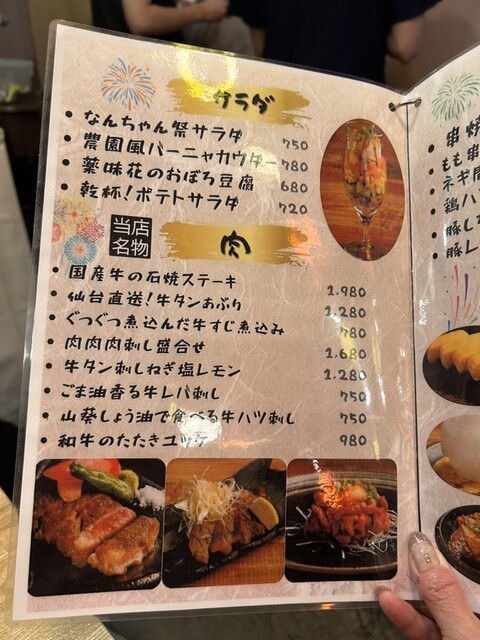 サラダ
・なんちゃん祭サラダ 750
・農園風バーニャカウダー 780
・薬味花のおぼろ豆腐 680
・乾杯!ポテトサラダ 720
当店名物
肉
・国産牛の石焼ステーキ 1.980
・仙台直送!牛タンあぶり 1.280
・ぐつぐつ煮込んだ牛すじ煮込み 780
・肉肉肉刺し盛合せ 1.680
・牛タン刺しねぎ塩レモン 1.280
・ごま油香る牛レバ刺し 750
・山葵しょう油で食べる牛ハツ刺し 750
・和牛のたたきユッケ 980
・串焼
・もも串
・ネギ間
・鶏ハ
・豚し
・豚レ